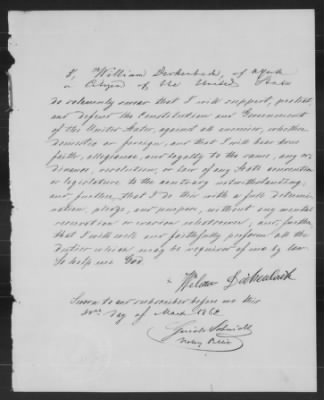 I, William Dickenback, of New York
a Citizen of the United States
do solemnly swear that I will support, protect,
and defend the Constitution and Government
of the United States, against all enemies, whether
domestic or foreign, and that I will bear true
faith, allegiance, and loyalty to the same, any or-
dinance, resolution, or law of any State convention
or legislature to the contrary notwithstanding,
and further, that I do this with a full determi-
nation, pledge, and purpose, without any mental
reservation or evasion whatsoever, and further,
that I will well and faithfully perform all the
duties which may be required of me by law.
So help me God.
Sworn to and subscribed before me this
day of March 1862
Notary Public